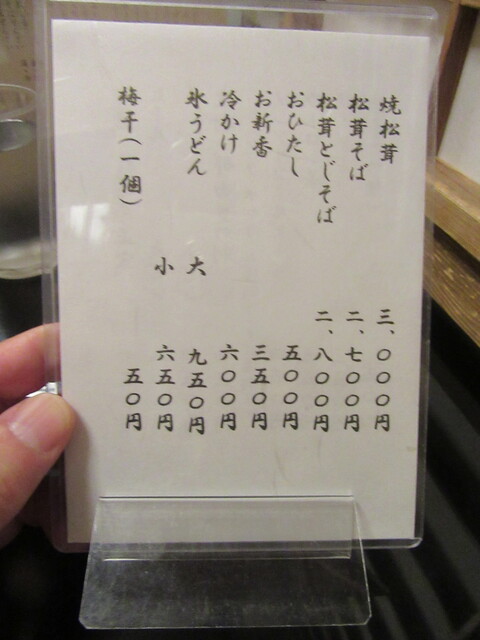 焼松茸 三、〇〇〇円
松茸そば 二、七〇〇円
松茸とじそば 二、八〇〇円
おひたし 五〇〇円
お新香 三五〇円
冷かけ 六〇〇円
氷うどん 大 九五〇円
小 六五〇円
梅干（一個） 五〇円